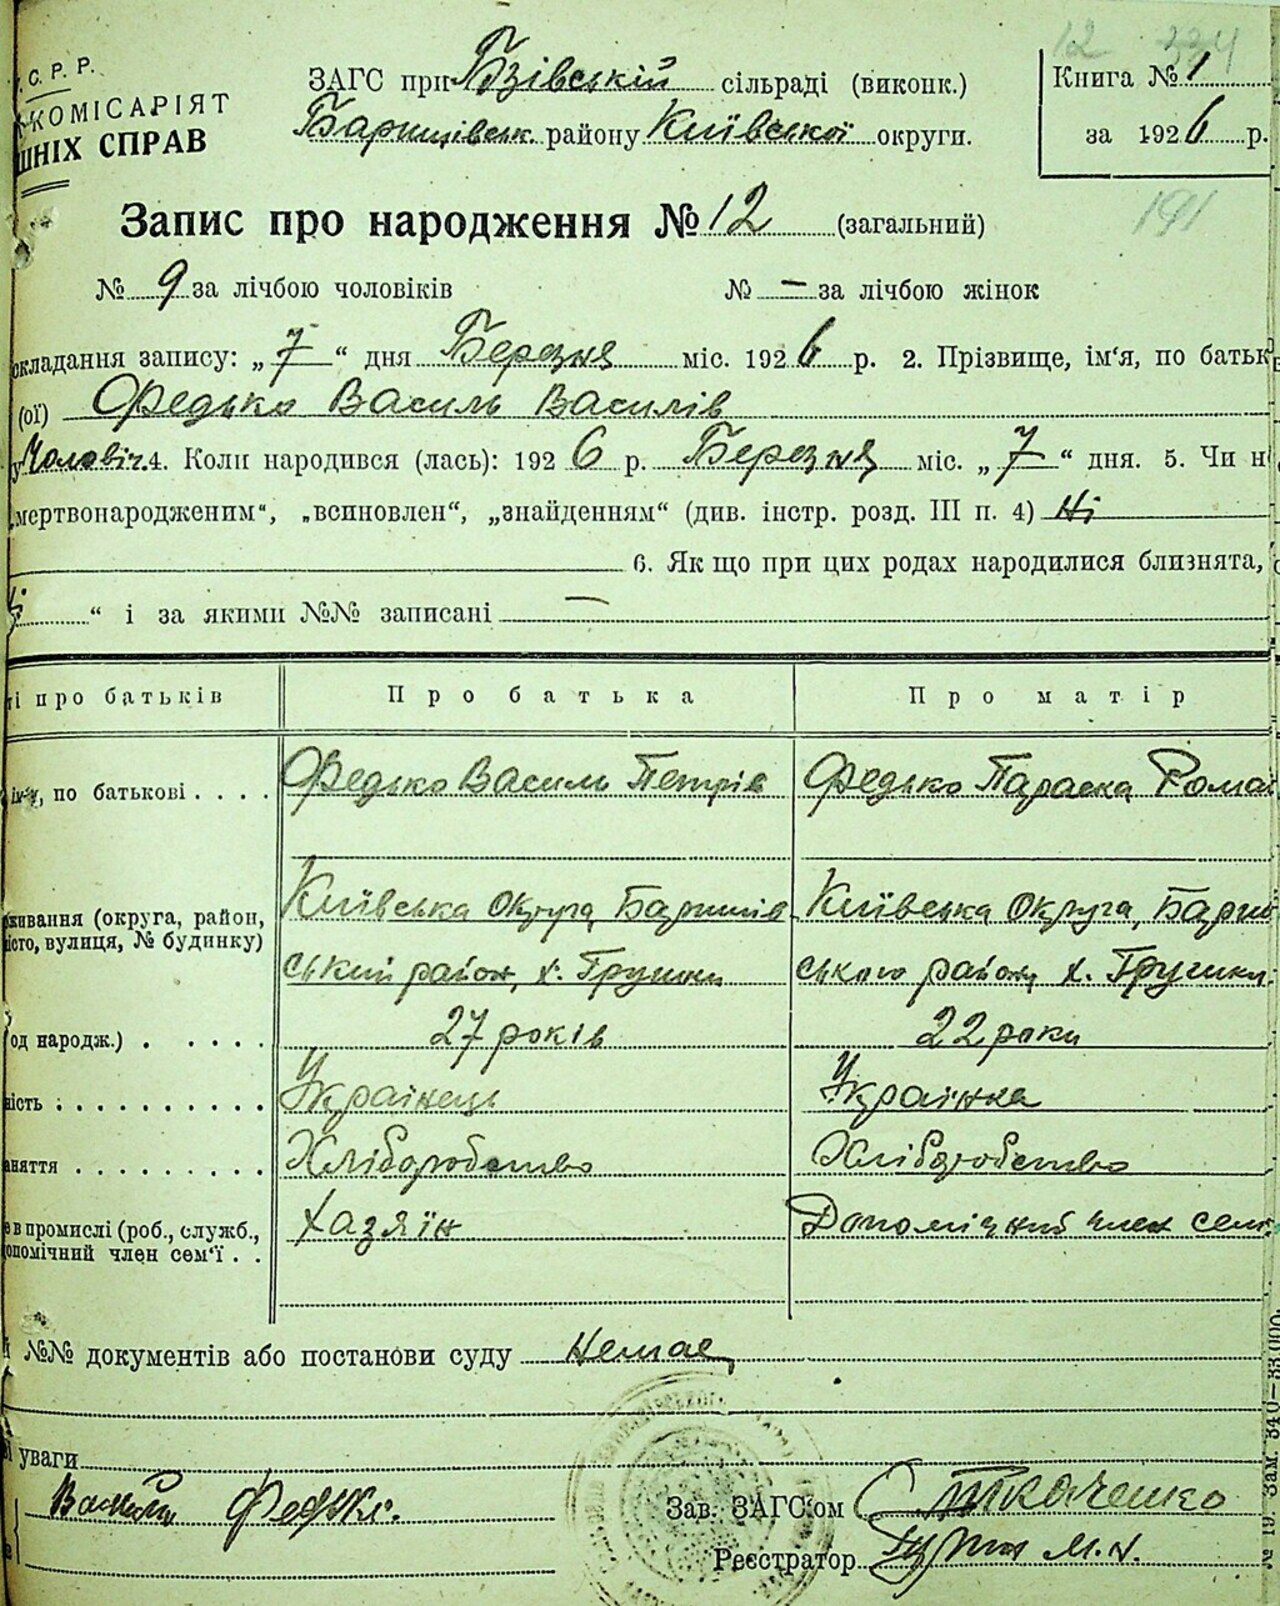 С. Р. Р.
КОМІСАРІЯТ
ШНІХ СПРАВ
ЗАГС при Бзівській сільраді (виконк.)
Баришівськ. району Київської округи.
12 334
Книга № 1
за 1926 р.
191
Запис про народження № 12 (загальний)
№ 9 за лічбою чоловіків № — за лічбою жінок
складання запису: „ 7 “ дня Березня міс. 1926 р. 2. Прізвище, ім‘я, по батьк
(ої) Федько Василь Василів
Чоловіч. 4. Коли народився (лась): 1926 р. Березня міс. „ 7 “ дня. 5. Чи н
„мертвонародженим“, „всиновлен“, „знайденням“ (див. інстр. розд. III п. 4) Ні
6. Як що при цих родах народилися близнята,
“ і за якими №№ записані —
ті про батьків Про батька Про матір
ім‘я, по батькові . . . . Федько Василь Петрів Федько Параска Рома
живання (округа, район, Київська округа, Баришів Київська округа, Бариш
місто, вулиця, № будинку) ський район, х. Грушки ського району х. Грушки
од народж.) . . . . . 27 років 22 роки
ність . . . . . . . . . . Українець Українка
аняття . . . . . . . . . Хліборобство Хліборобство
е в промислі (роб., служб., Хазяїн Допомічний член сем
опомічний член сем‘ї . .
№№ документів або постанови суду Немає
уваги
Василь Федько.
Зав. ЗАГС‘ом С. Ткаченко
Реєстратор М.
№ 19. Зам. 340—33.000.